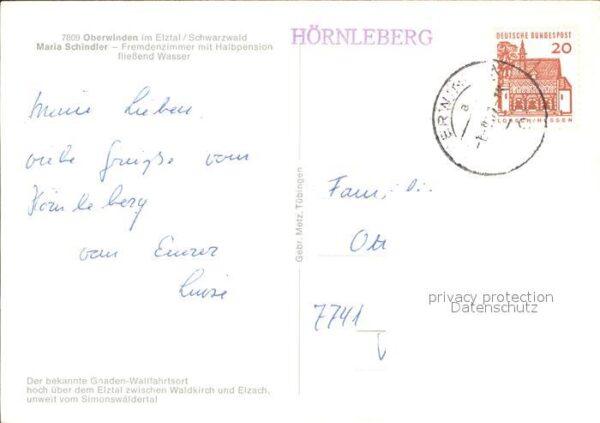 7809 Oberwinden im Elztal / Schwarzwald
Maria Schindler – Fremdenzimmer mit Halbpension
fließend Wasser
HÖRNLEBERG
DEUTSCHE BUNDESPOST
20
LORSCH/HESSEN
Meine Lieben
viele Grüße vom
Hörnleberg
von Eurer
Luise
Gebr. Metz, Tübingen
Familie
Ott
7741
privacy protection
Datenschutz
Der bekannte Gnaden-Wallfahrtsort
hoch über dem Elztal zwischen Waldkirch und Elzach,
unweit vom Simonswäldertal